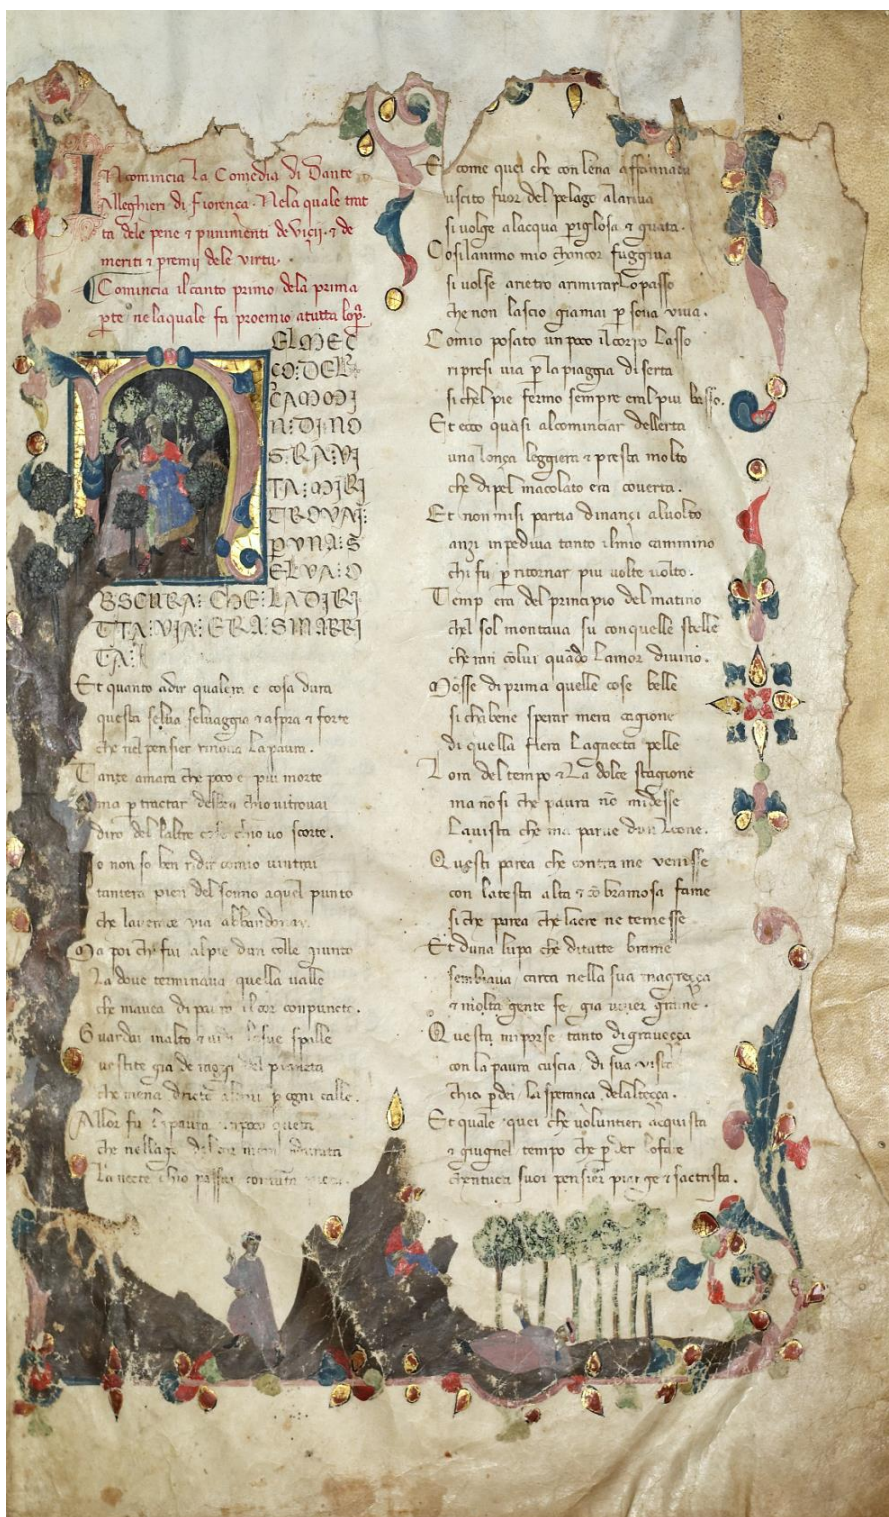 Incomincia la Comedia di Dante
Alleghieri di Fiorenca. Nela quale trat
ta dele pene et punimenti de vicij. et de
meriti et premii dele virtu.
Comincia il canto primo dela prima
parte nelaquale fa proemio atutta lopa.
NEL MEÇ
ÇO: DEL
CAMMI
N: DI NO
S. RA: VI
TA: MI RI
TROVAI:
P VNA: S
ELVA: O
BSCURA: CHE: LA DIRI
TTA: VIA: ERA: SMARRI
TA:
Et quanto adir qualera e cosa dura
questa selua seluaggia et aspra et forte
che nel pensier rinova la paura.
Tante amara che poco e piu morte
ma p tractar del ben chio ui trouai
diro del laltre chio uo scorte.
Io non so ben ridir comio uintrai
tantera pien del sonno aquel punto
che la verace via abbandonai.
Ma poi chi fui alpie dun colle giunto
la dove terminava quella ualle
che mavea di paura il cor conpuncto.
Guardai inalto et uidi le sue spalle
uestite gia de raggi del pianeta
che mena dricto altrui p ogni calle.
Allor fu la paura un poco queta
che nel lago del cor mera durata
la nocte chio passai
E come quei che con lena affannata
uscito fuor del pelago alariua
si volge alacqua pigliosa et guata.
Cosi lanimo mio chancor fuggiua
si volse arietro arimirar lo passo
che non lascio giamai p sona viva.
Comio posato un poco il corpo lasso
ripresi via p la piaggia diserta
sichel pie fermo sempre eral piu basso.
Et ecco quasi alcominciar dellerta
una lonça leggiera et presta molto
che dipel macolato era coverta.
Et non misi partia dinançi aluolto
anzi inpediva tanto ilmio cammino
chi fu p ritornar piu uolte uolto.
Temp era del principio del matino
chel sol montava su con quelle stelle
cheran cōlui quādo lamor divino.
Mosse di prima quelle cose belle
si cha bene sperar mera cagione
di quella fiera lagaecta pelle
Lora del tempo et la dolce stagione
ma nō si che paura nō midesse
la uista che ma parue dun leone.
Questi parea che contra me venisse
con latesta alta et cō bramosa fame
si che parea che laere ne temesse
Et duna lupa che ditutte brame
sembiava carca nella sua magreçça
et molta gente fe gia uiver grame.
Questa miporse tanto digraveçça
con la paura cuscia di sua vista
chio pdei la sperança delalteçça.
Et quale quei che voluntieri acquista
et giugnel tempo che p der lo face
chentucti suoi pensier piange et sactrista.